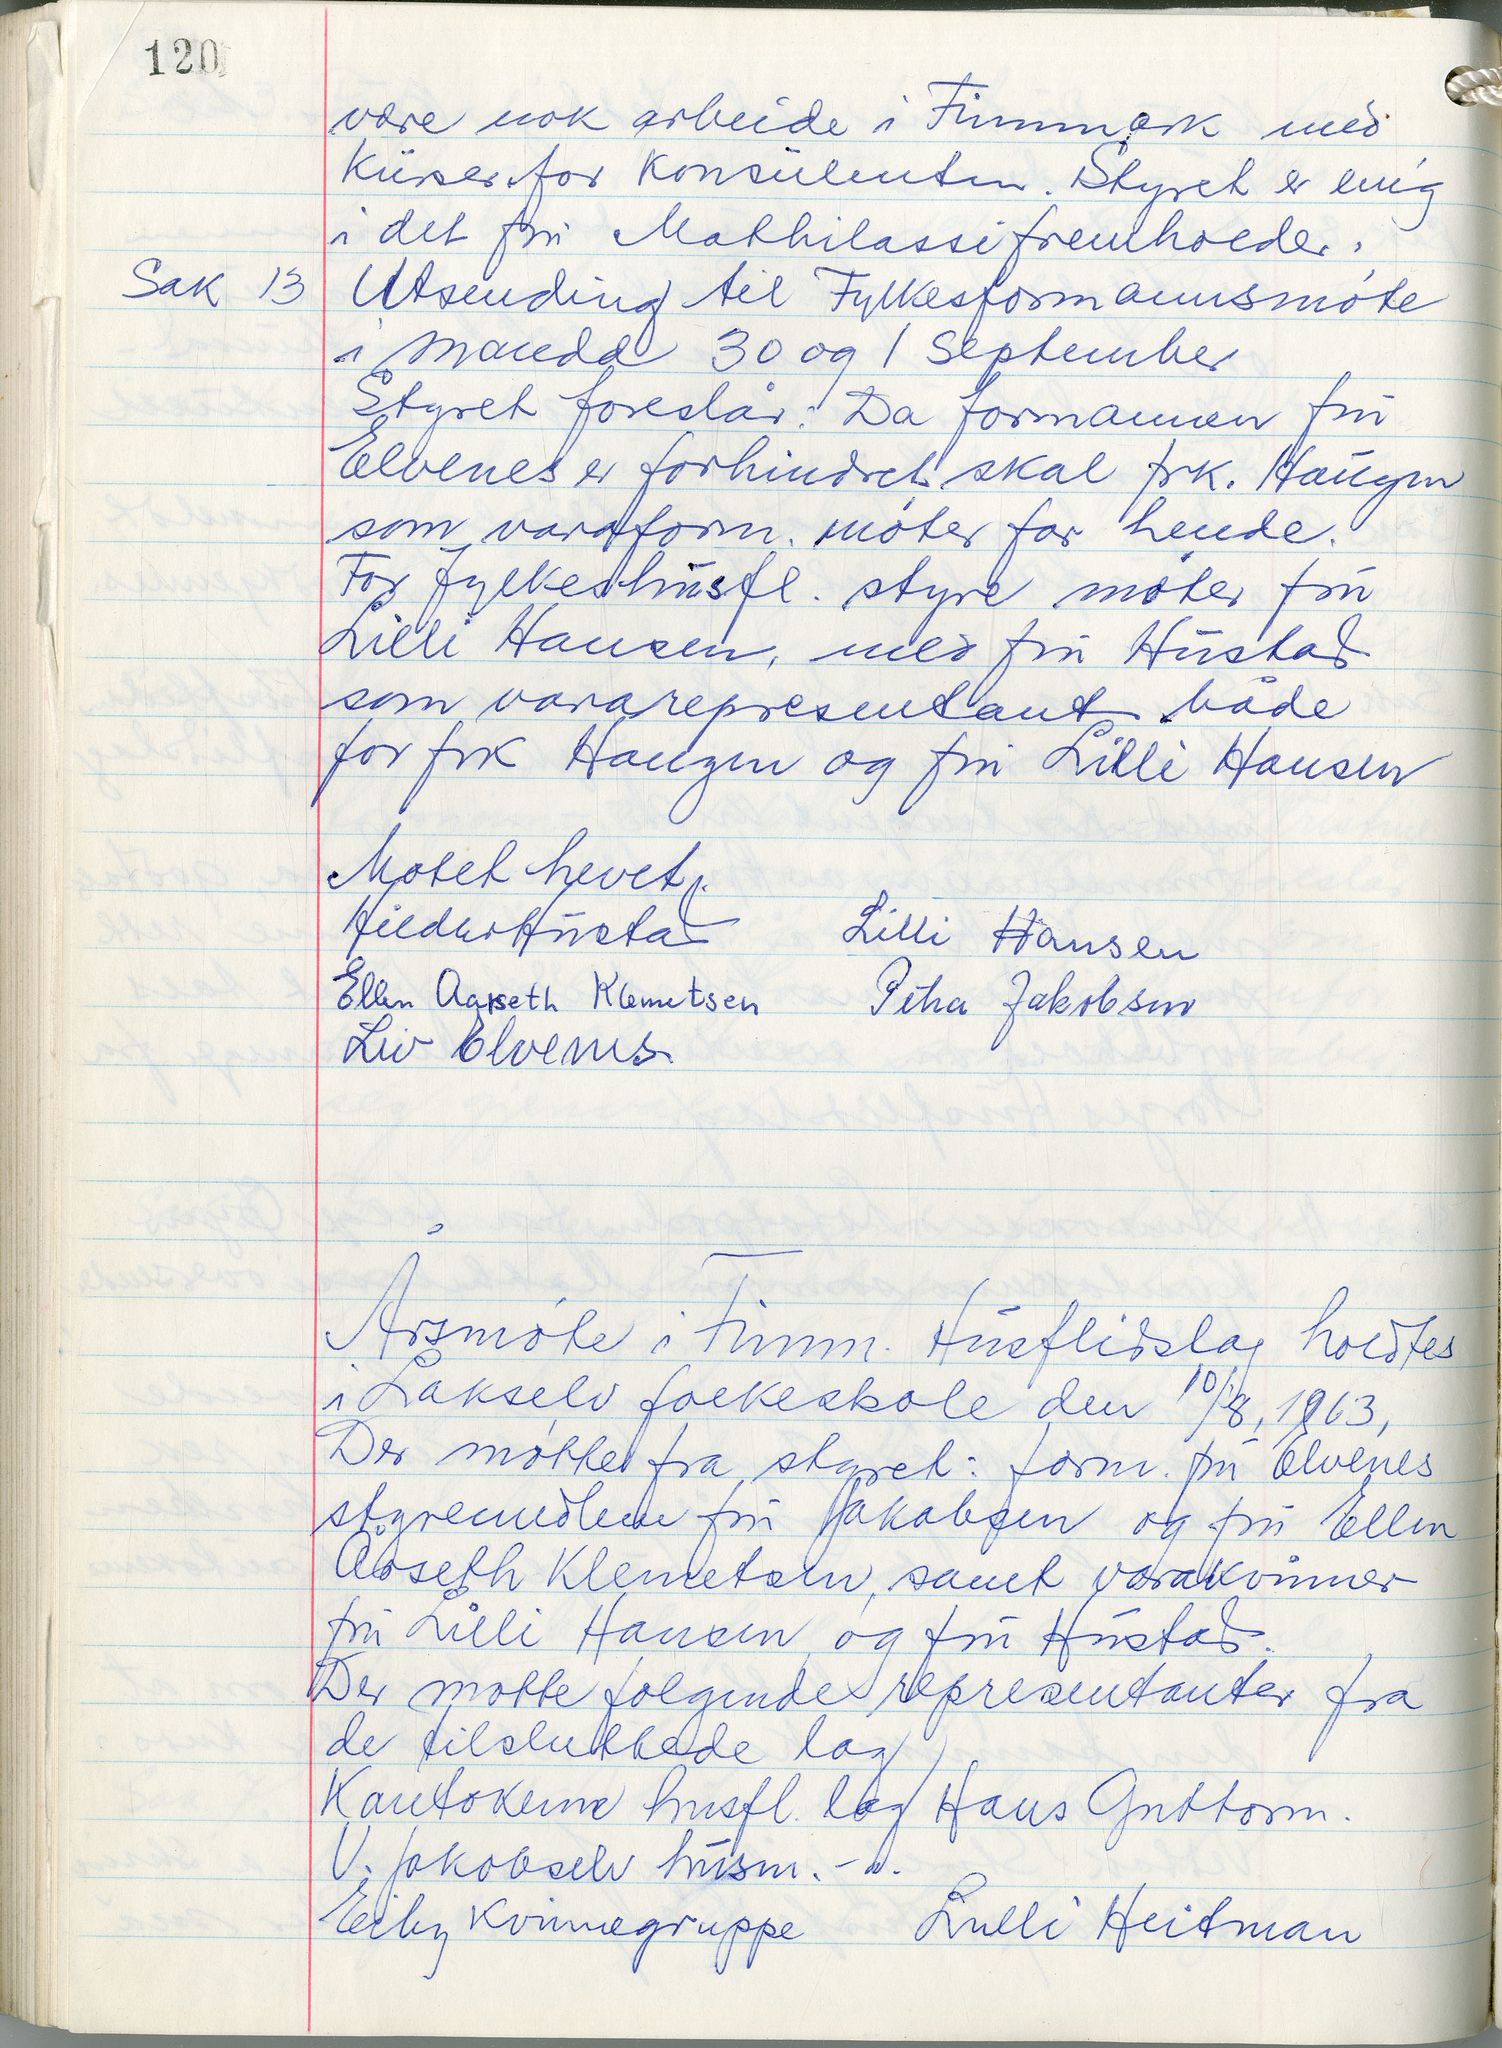 120
være nok arbeide i Finnmark med
kurser for konsulenten. Styret er enig
i det fru Mathilassi fremholder.
Sak 13 Utsending til Fylkesformannsmøte
i 30 og 1 September
Styret foreslår: Da formannen fru
Elvenes er forhindret skal frk. Haugen
som varaform. møter for hende.
For fylkeshusfl. styre møter fru
Lilli Hansen, med fru Hustad
som vararepresentant både
for frk Haugen og fru Lilli Hansen
Møtet hevet.
Hustad Lilli Hansen
Ellen Aarseth Klemetsen Petra Jakobsen
Liv Elvenes
Årsmøte i Finnm. Husflidslag holdtes
i Lakselv folkeskole den 10/8, 1963,
Der møtte fra styret: form. fru Elvenes
styremedlem fru Jakobsen og fru Ellen
Aarseth Klemetsen, samt varakvinner
fru Lilli Hansen og fru Hustad.
Der møtte følgende representanter fra
de tilsluttede lag
Kautokeino husfl. lag Hans Guttorm.
V. Jakobselv husm. -"-
Eiby Kvinnegruppe Lulli Heitman